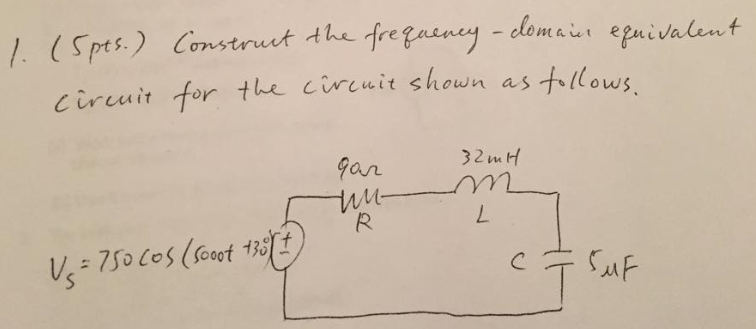 1. (5pts.) Construct the frequency-domain equivalent
circuit for the circuit shown as follows.
90Ω
32mH
R
L
Vs = 750 cos (5000t +30°)
+
-
C
5μF